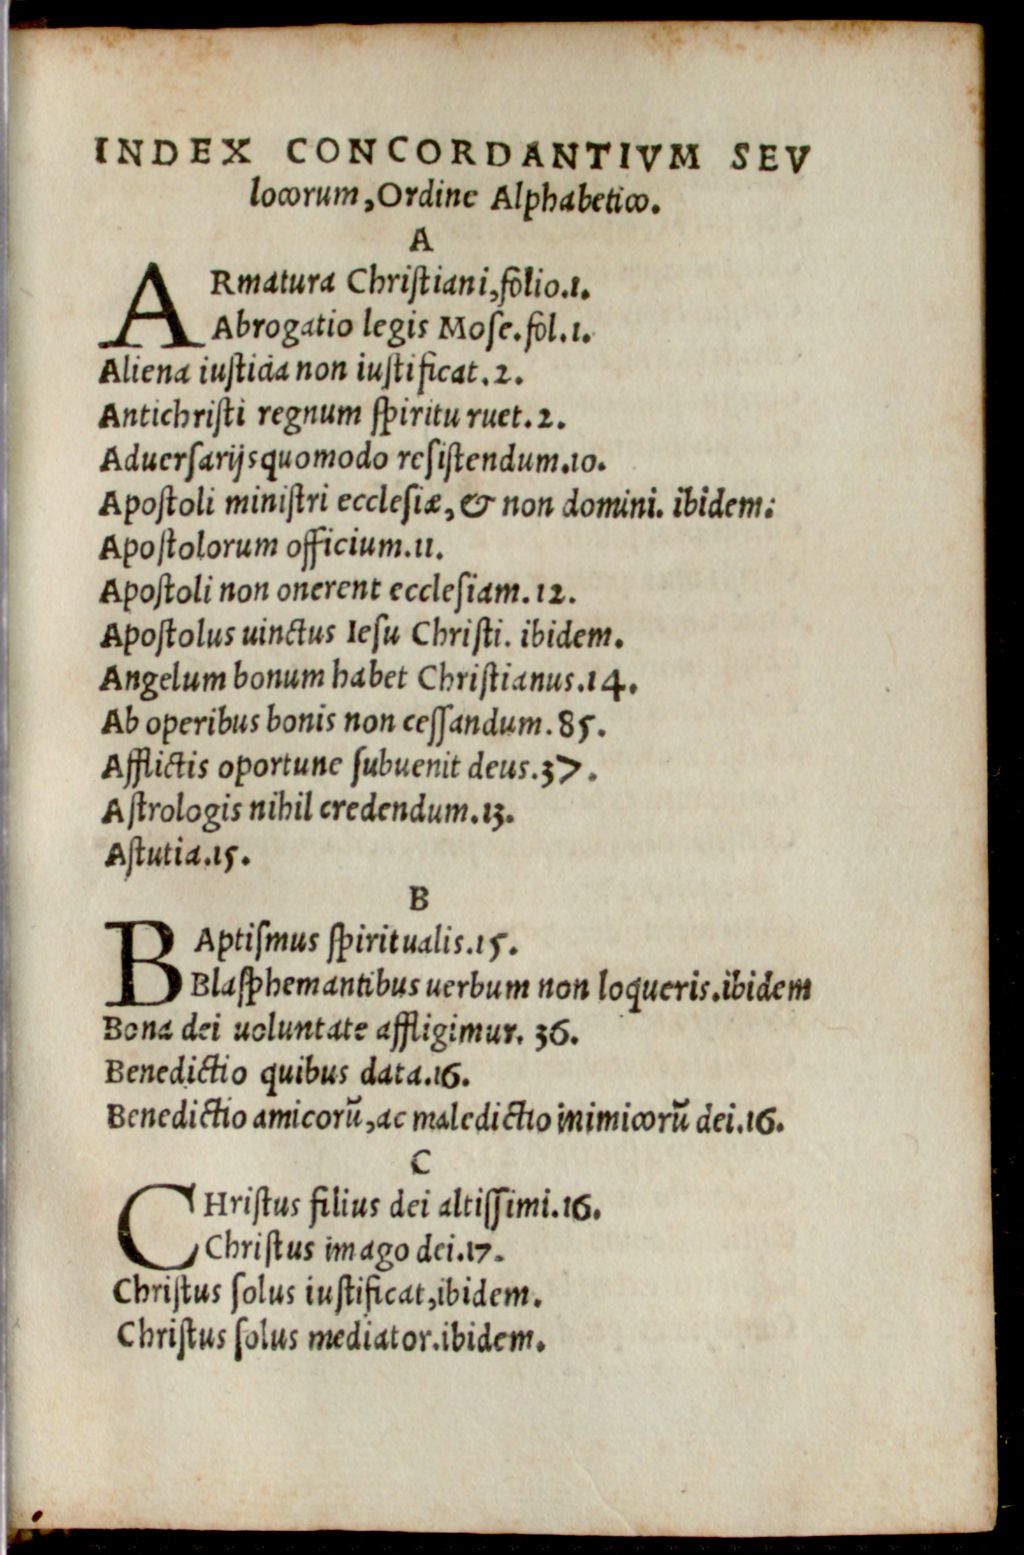 INDEX CONCORDANTIVM SEV
locorum, Ordine Alphabetico.
A
ARmatura Christiani, folio.1.
Abrogatio legis Mose. fol.1.
Aliena iusticia non iustificat.2.
Antichristi regnum spiritu ruet.2.
Aduersarijs quomodo resistendum.10.
Apostoli ministri ecclesiæ, & non domini. ibidem:
Apostolorum officium.11.
Apostoli non onerent ecclesiam.12.
Apostolus uinctus Iesu Christi. ibidem.
Angelum bonum habet Christianus.14.
Ab operibus bonis non cessandum.85.
Afflictis oportune subuenit deus.37.
Astrologis nihil credendum.13.
Astutia.15.
B
BAptismus spiritualis.15.
Blasphemantibus uerbum non loqueris.ibidem
Bona dei uoluntate affligimur. 36.
Benedictio quibus data.16.
Benedictio amicorũ, ac maledictio inimicorũ dei.16.
C
CHristus filius dei altissimi.16.
Christus imago dei.17.
Christus solus iustificat, ibidem.
Christus solus mediator.ibidem.